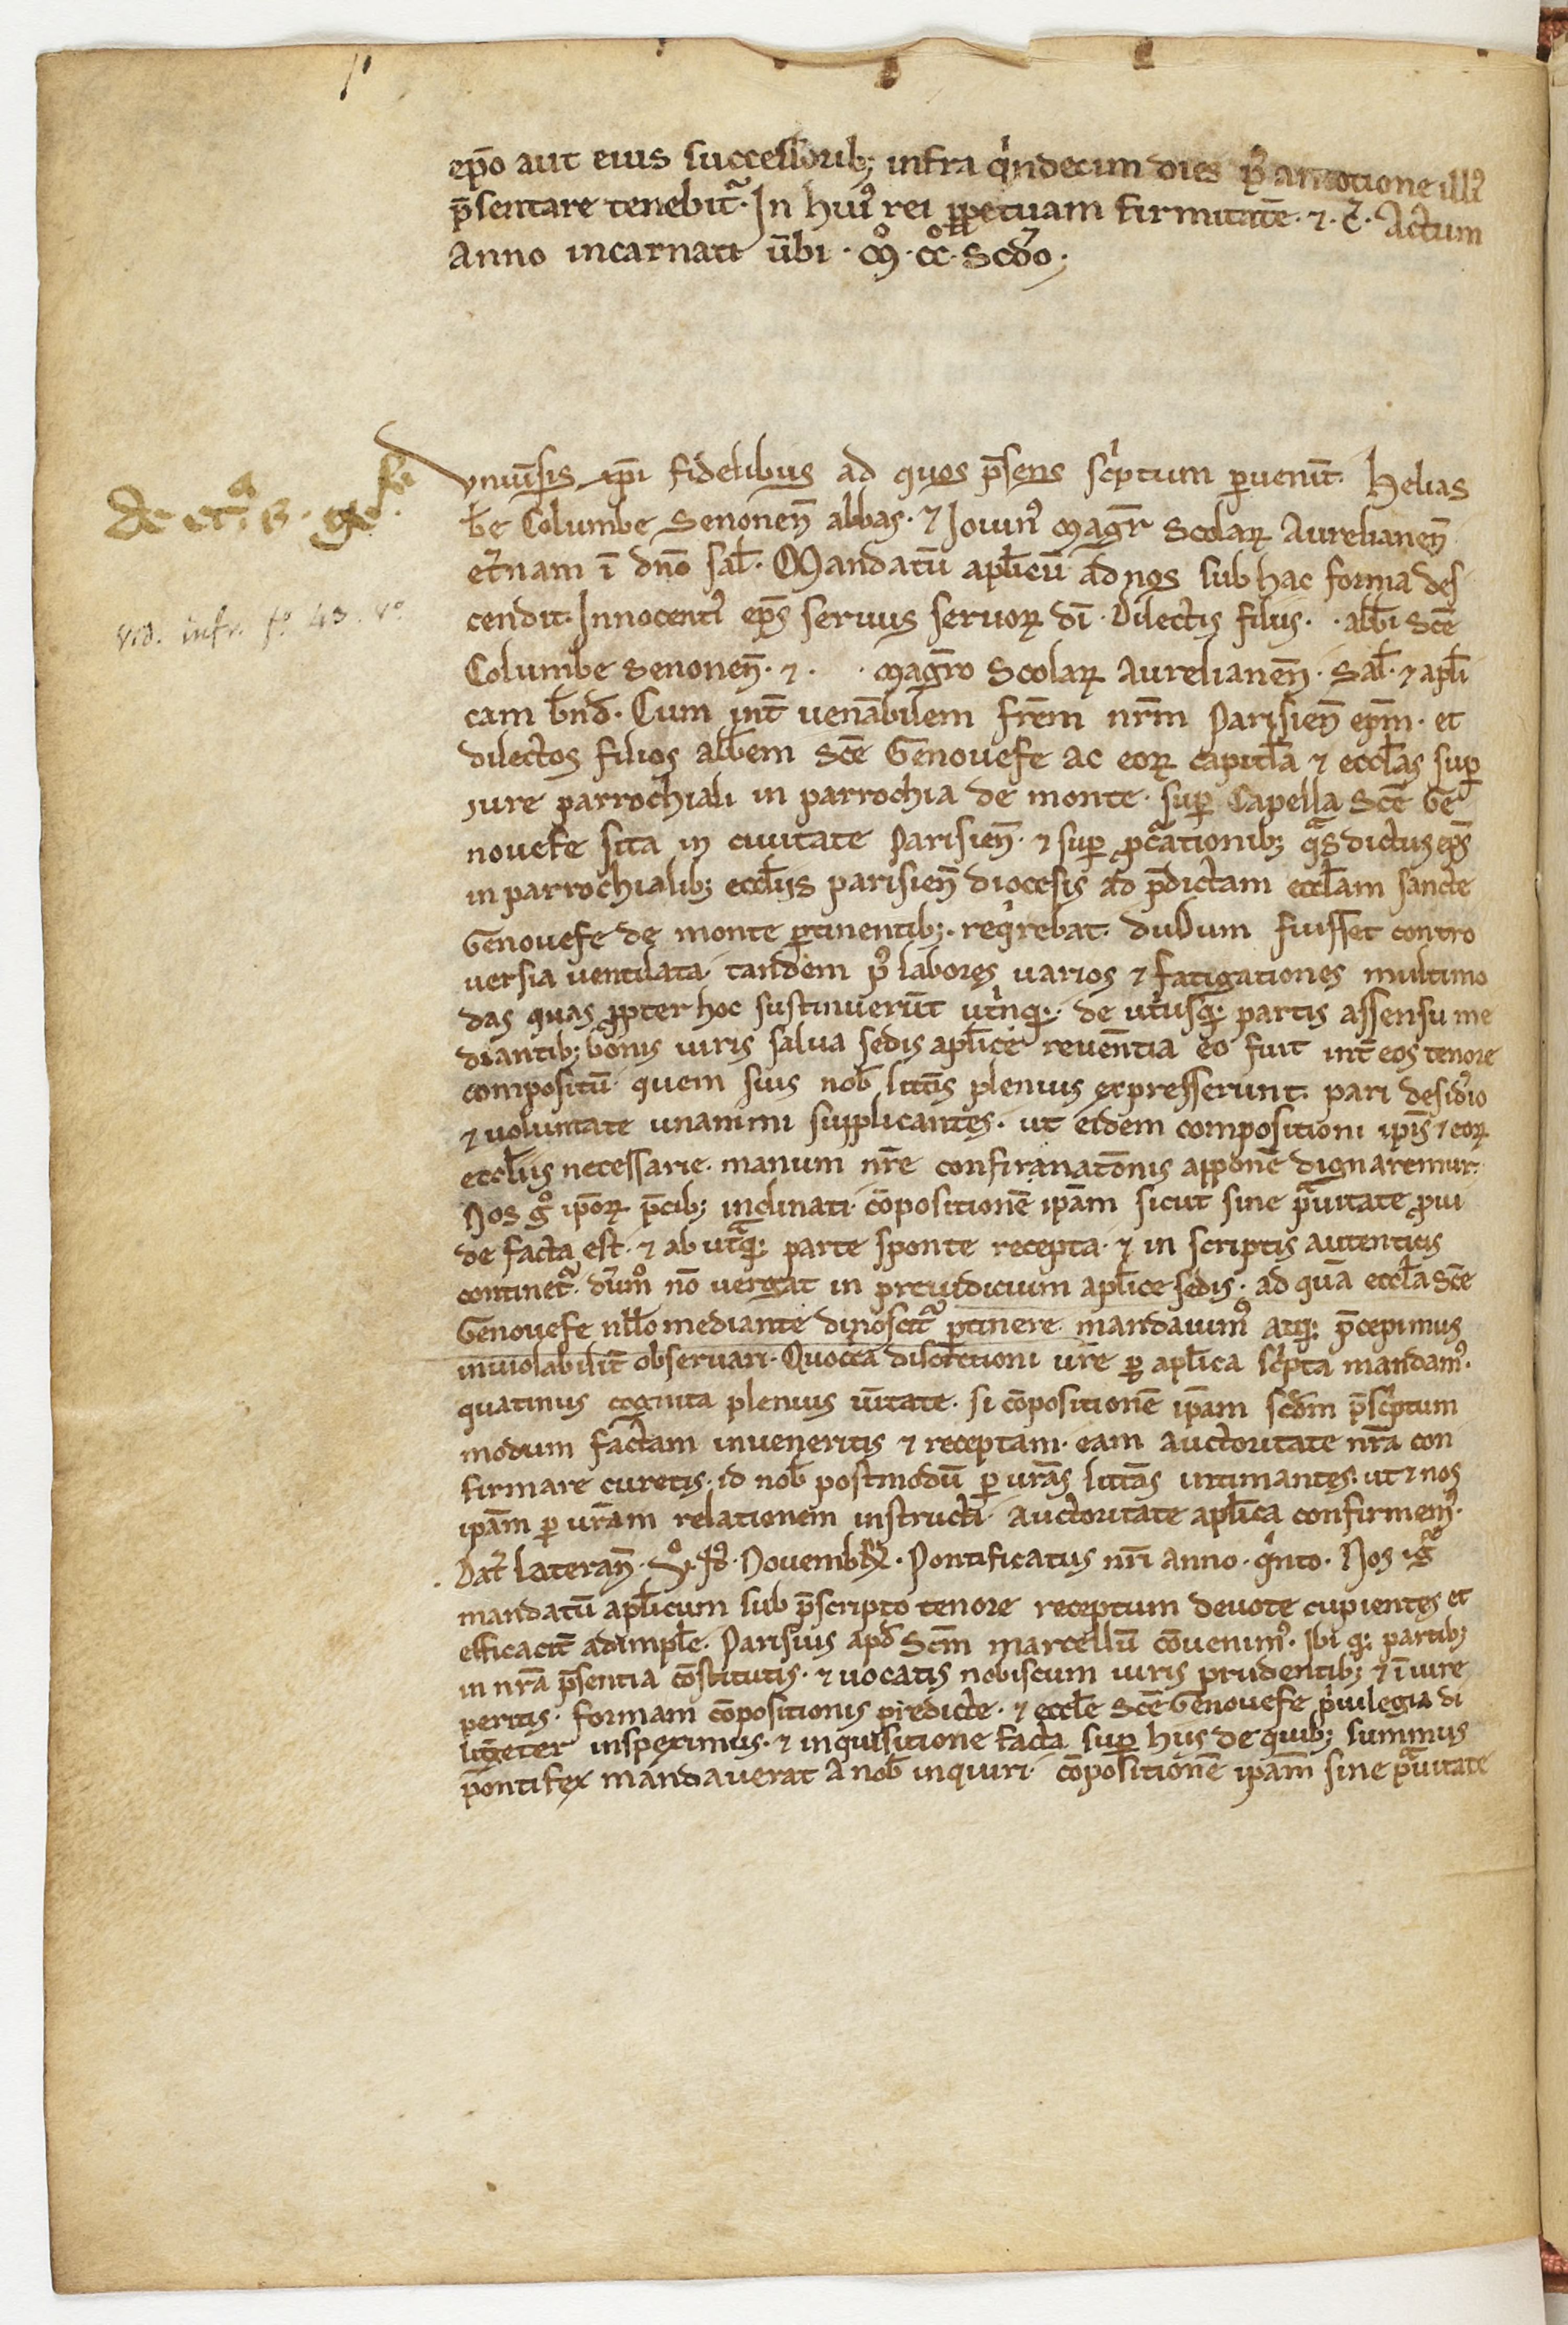 ep̄o aut eius successorib; infra qⁱndecim dies pꝰ amotione illiꝰ
p̄sentare tenebitᷓ. In huiꝰ rei ꝑpetuam firmitatē. ⁊. c̄. Actum
Anno incarnati ūbi. Mͦ. CCͦ. Scd̄o.
Vniūsis xp̄i fidelibus ad quos p̄sens scⁱptum ꝑuenīt. Helias
b̄e Columbe Senonen̄ abbas. ⁊ Iouinꝰ Magr̄ Scolaꝝ Aurelianen̄
et̄nam ī dn̄o sal̄. Mandatū apl̄icū ad nos sub hac forma des
cendit. Innocentiꝰ ep̄s seruus seruoꝝ dī. Dilectis filiis. . abb̄i Sc̄e
Columbe Senonen̄. ⁊ . . magr̄o Scolaꝝ Aurelianen̄. Sal̄. ⁊ apl̄i
cam bn̄d. Cum int̄ uenābilem fr̄em nr̄m Parisien̄ ep̄m. et
dilectos filios abb̄em Sc̄e Genouefe ac eoꝝ capitl̄a ⁊ eccl̄as suꝑ
iure parrochiali in parrochia de monte. suꝑ Capella Sc̄e Ge
nouefe sita in ciuitate Parisien̄. ⁊ suꝑ ꝓcᷓationib; qᷓs dictus ep̄s
in parrochialib; eccl̄iis parisien̄ diocesis ad p̄dictam eccl̄am sancte
Genouefe de monte ꝑtinentib;. reqⁱrebat. duDum fuisset contro
uersia uentilata. tandem pꝰ labores uarios ⁊ fatigationes multimo
das quas ꝓpter hoc sustinuerūt utⁱnq;. de utⁱusq; partis assensu me
diantib; bonis uiris salua sedis apl̄ice reuēntia eo fuit int̄ eos tenore
compositū. quem suis nob̄ litt̄is plenius expresserunt. pari desid̄io
⁊ uoluntate unanimi supplicantes. ut eidem compositioni ip̄is ⁊ eoꝝ
eccl̄iis necessarie. manum nr̄e confirmatōnis apponē dignaremur.
Nos gͦ ip̄oꝝ p̄cib; inclinati. cōpositionē ip̄am sicut sine pᷓuitate ꝓui
de facta est. ⁊ ab utᷓq; parte sponte recepta. ⁊ in scriptis autenticis
continetᷓ. dūmͦ nō uergat in preiudicium apl̄ice sedis. ad quā eccl̄a Sc̄e
Genouefe nll̄o mediante dinoscitᷓ ꝑtinere. mandauimꝰ atq; p̄cepimus
inuiolabilit̄ obseruari. Quocᷓa discretioni ur̄e ꝑ apl̄ica scⁱpta mandamꝰ.
quatinus cognita plenius ūitate. si cōpositionē ip̄am scd̄m p̄scⁱptum
modum factam inueneritis ⁊ receptam. eam auctoritate nr̄a con
firmare curetis. id nob̄ postmodū ꝑ ur̄as litt̄as intimantes. ut ⁊ nos
ip̄am ꝑ ur̄am relationem instructi. auctoritate apl̄ica confirmemꝰ.
Dat̄ Lateran̄. . Novembr̄. Pontificatus nr̄i anno. qⁱnto. Nos igͦ
mandatū apl̄icum sub p̄scripto tenore receptum deuote cupientes et
efficacit̄ adimpl̄e. Parisius apd̄ Scm̄ marcellū cōuenimꝰ. Ibi q; partib;
in nr̄a p̄sentia cōstitutis. ⁊ uocatis nobiscum uiris prudentib; ⁊ ī iure
peritis. formam cōpositionis predicte. ⁊ eccl̄e Sc̄e Genouefe pⁱuilegia di
ligēter inspeximus. ⁊ inquisitione facta suꝑ hiis de quib; summus
pontifex mandauerat a nob̄ inquiri. cōpositionē ip̄am sine pᷓuitate
vid. infr. fº 43. vº